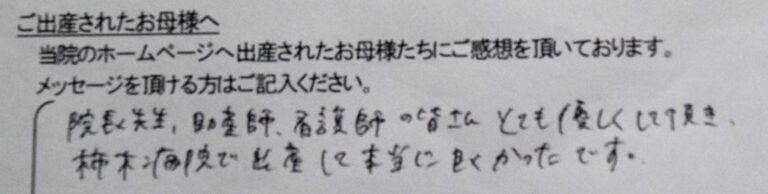 ご出産されたお母様へ
当院のホームページへ出産されたお母様たちにご感想を頂いております。
メッセージを頂ける方はご記入ください。
院長先生、助産師、看護師の皆さんとても優しくして頂き、
柿木病院で出産して本当に良かったです。